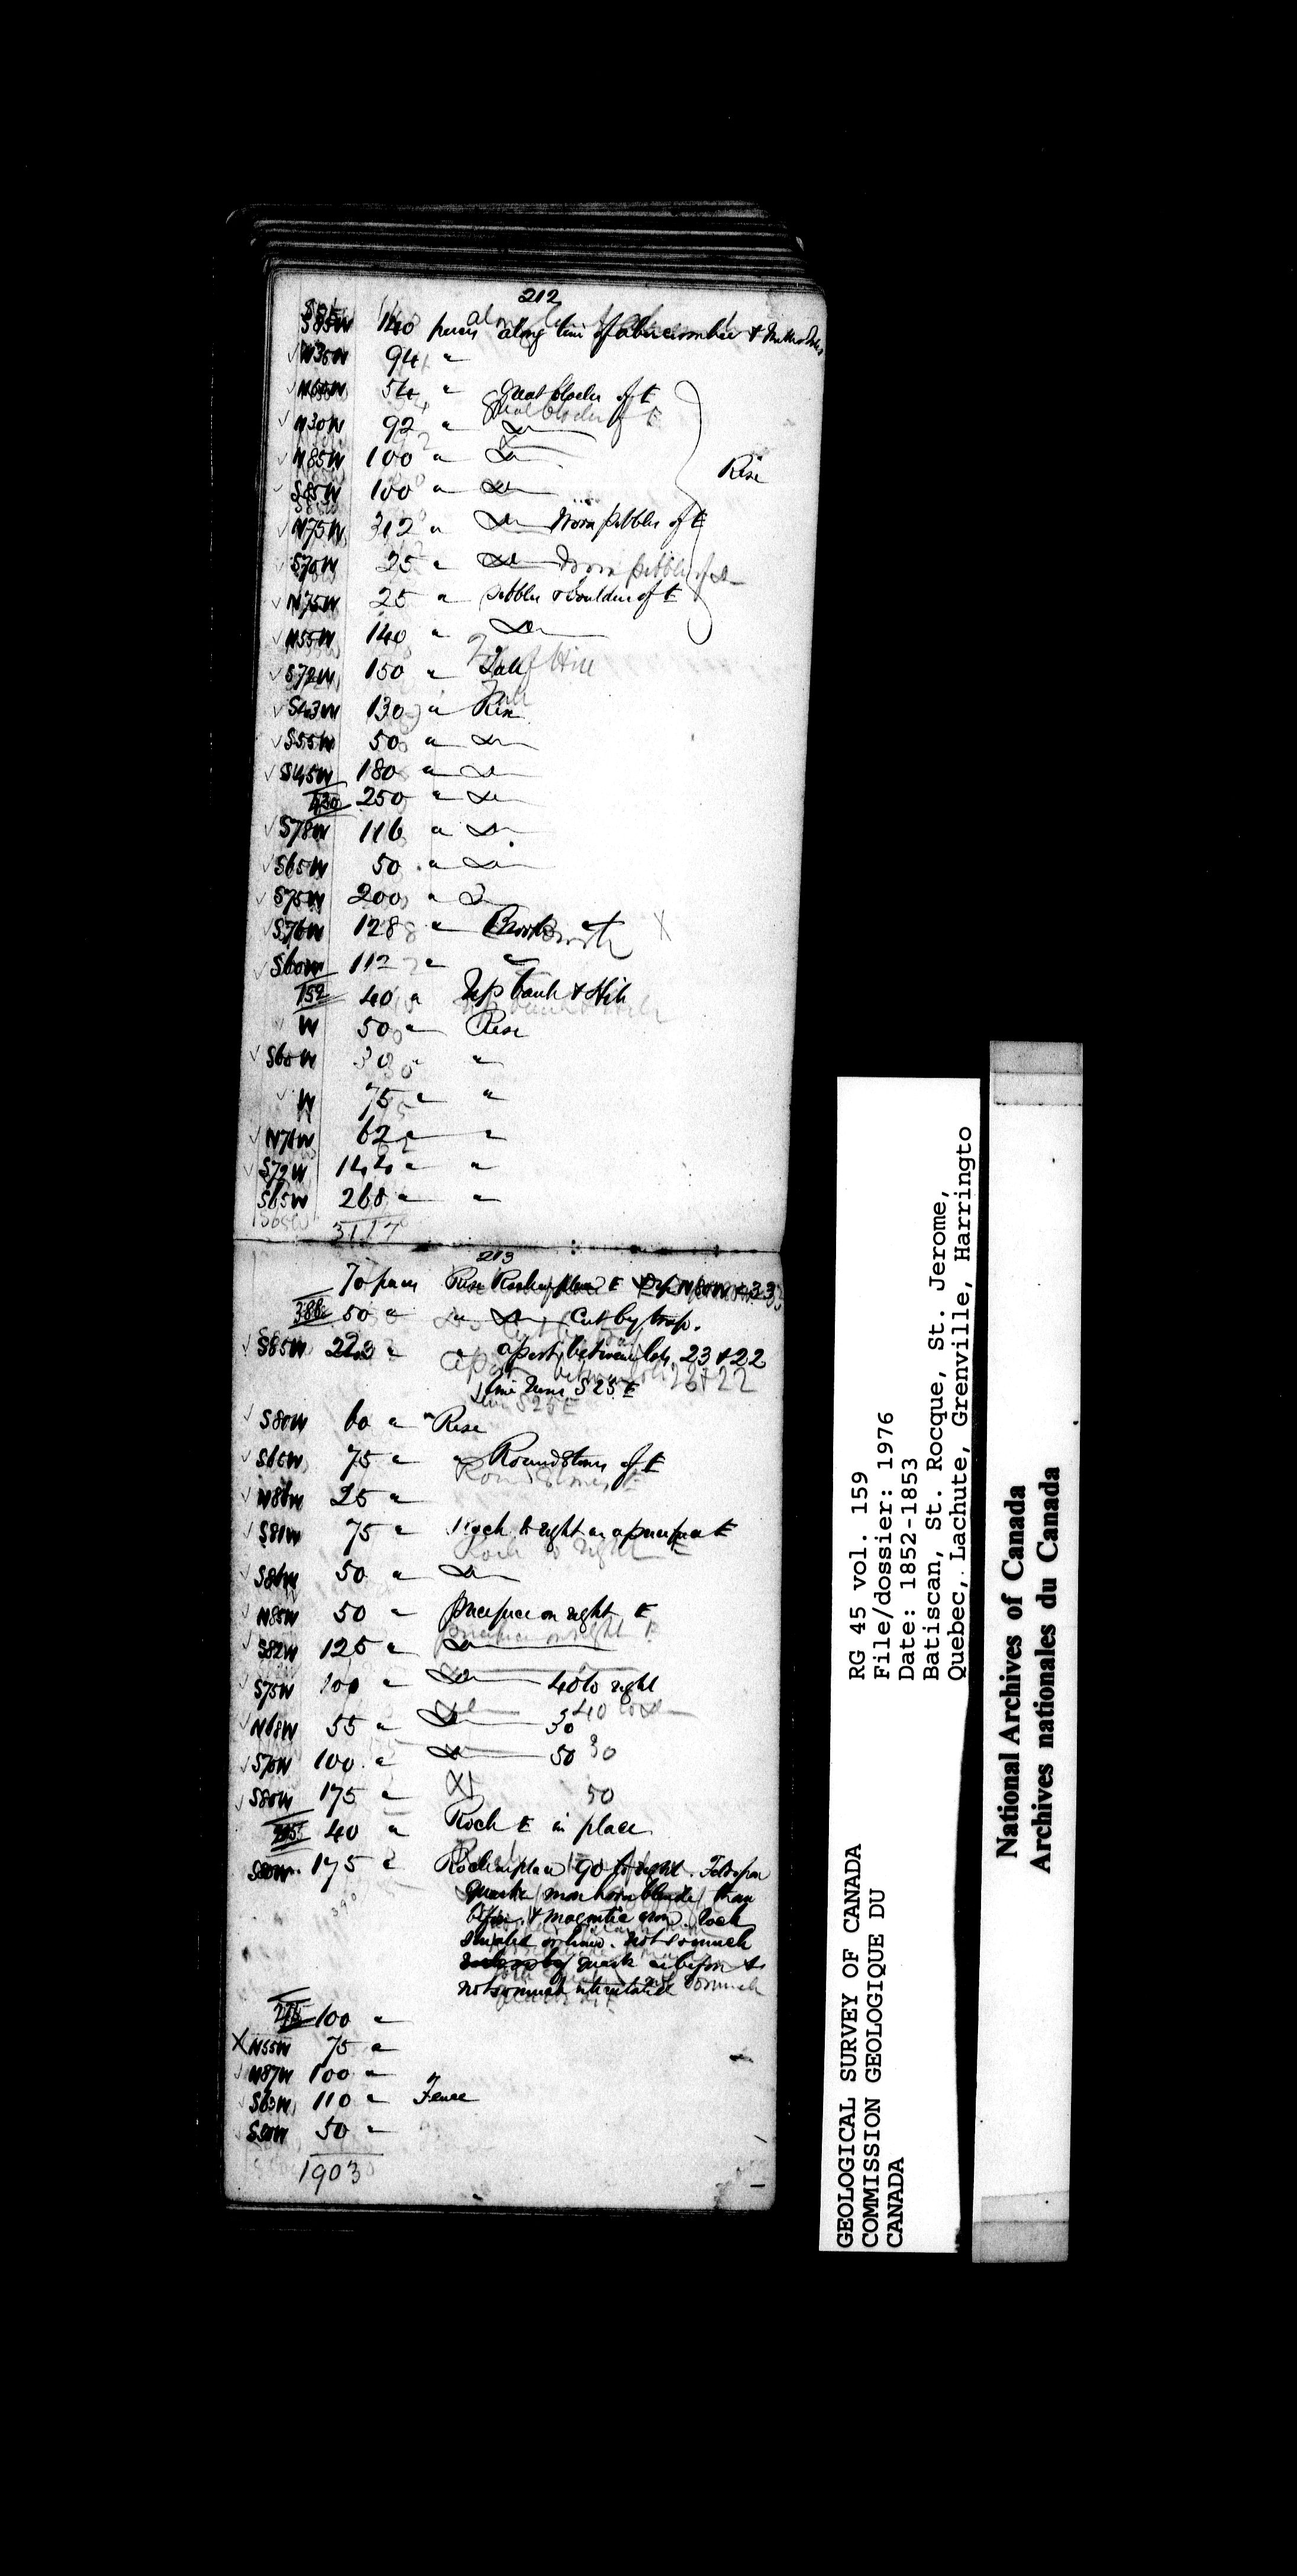 212
S85W 140 paces along line of abercrombie &
N35W 94 "
N60W 54 " Great blocks of E
N30W 92 " Do
N85W 100 " Do Rise
S85W 100 " Do
N75W 312 " Do Worn pebbles of E
S70W 25 " Do Worn pebbles of Do
N75W 25 " pebbles & boulders of E
N55W 140 " Do
S72W 150 " Fall of Hill
S43W 130 " Rise
S55W 50 " Do
S45W 180 " Do
430 250 " Do
S78W 116 " Do
S65W 50 " Do
S75W 200 " Do
S76W 128 " Brook X
S60W 112 " "
152 40 " Up bank & Hill
W 50 " Rise
S60W 30 " "
W 75 " "
N76W 62 " "
S72W 144 " "
S65W 268 " "
3117
213
70 paces Rise Rock in place E Dip N80W < 33
388 50 " " Do Cut by trap.
S85W 223 " " a post between lots 23 & 22
line runs S25E
S80W 60 " Rise
S65W 75 " " Round Stones of E
N86W 25 "
S81W 75 " Rock to right in a precipice E
S86W 50 " Do
N85W 50 " precipice on right E
S82W 125 " Do
S75W 100 " Do 40 to right
N68W 55 " Do 30
S70W 100 " Do 50
S80W 175 "
215 40 " Rock E in place
S80W 175 " Rock in place 90 to right. Felspar
quartz more hornblende than
before & magnetic iron. Rock
not so much
quartz as before &
not so much
275 100 "
X N55W 75 "
N87W 100 "
S63W 110 " Fence
S50W 50 "
1903
GEOLOGICAL SURVEY OF CANADA
COMMISSION GEOLOGIQUE DU
CANADA
RG 45 vol. 159
File/dossier: 1976
Date: 1852-1853
Batiscan, St. Rocque, St. Jerome,
Quebec, Lachute, Grenville, Harringto
National Archives of Canada
Archives nationales du Canada